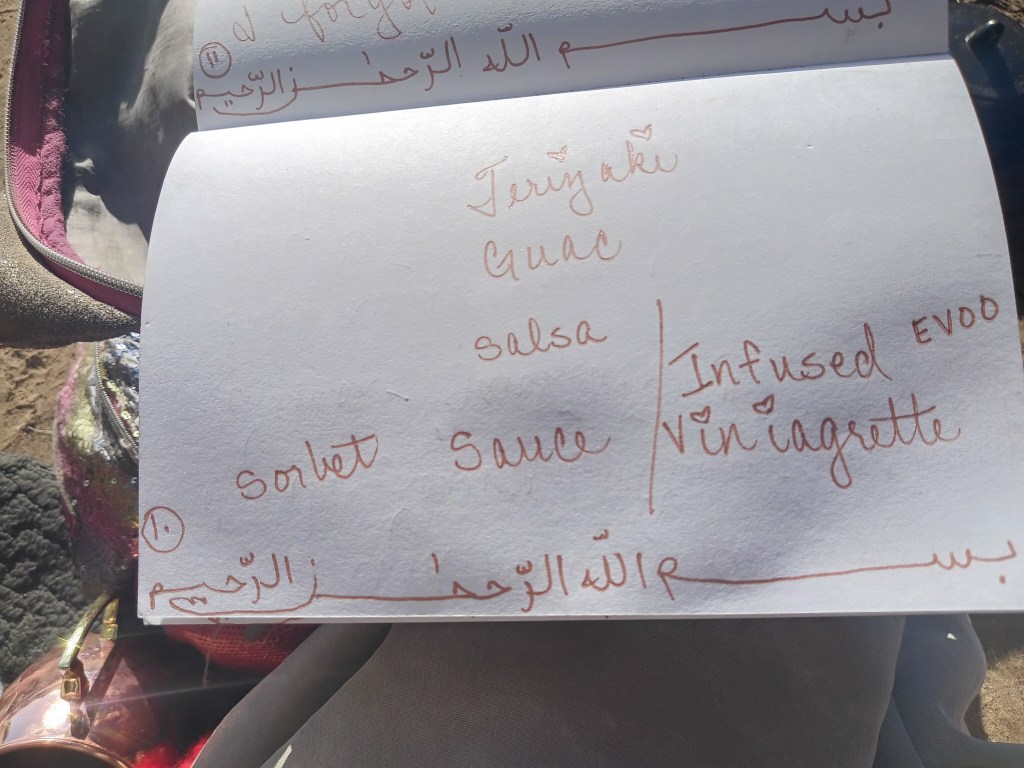 I forgot
١١
بسم الله الرّحمٰن الرّحيم
Teriyaki
Guac
salsa
Infused EVOO
sorbet sauce
Viniagrette
١٠
بسم اللّه الرّحمٰن الرّحيم